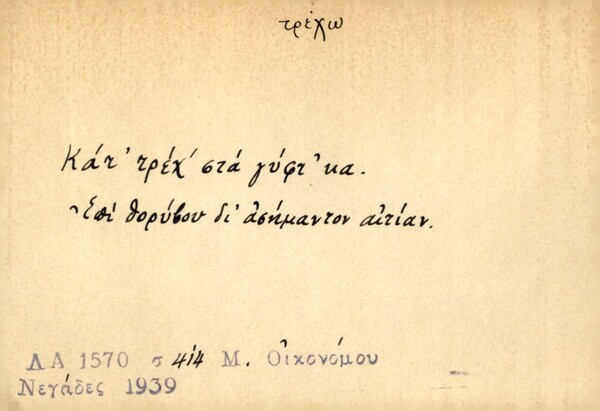 τρέχω
Κάτ' τρέχ' στά γύφτ'κα.
Ἐπί θορύβου δι' ἀσήμαντον αἰτίαν.
ΛΑ 1570 σ 414 Μ. Οἰκονόμου
Νεγάδες 1939